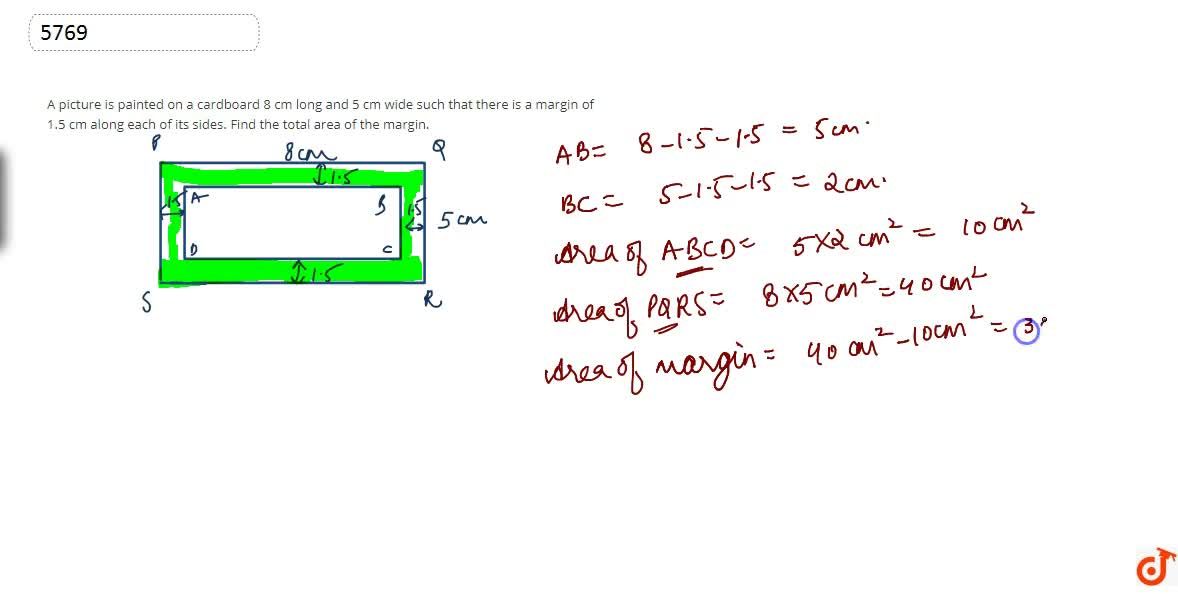 5769
A picture is painted on a cardboard 8 cm long and 5 cm wide such that there is a margin of
1.5 cm along each of its sides. Find the total area of the margin.
P 8cm Q
1.5
1.5 A B 1.5 5cm
D C
1.5
S R
AB= 8-1.5-1.5 = 5cm.
BC= 5-1.5-1.5 = 2cm.
Area of ABCD= 5×2 cm² = 10cm²
Area of PQRS= 8×5cm²=40cm²
Area of margin= 40cm²-10cm² = 3